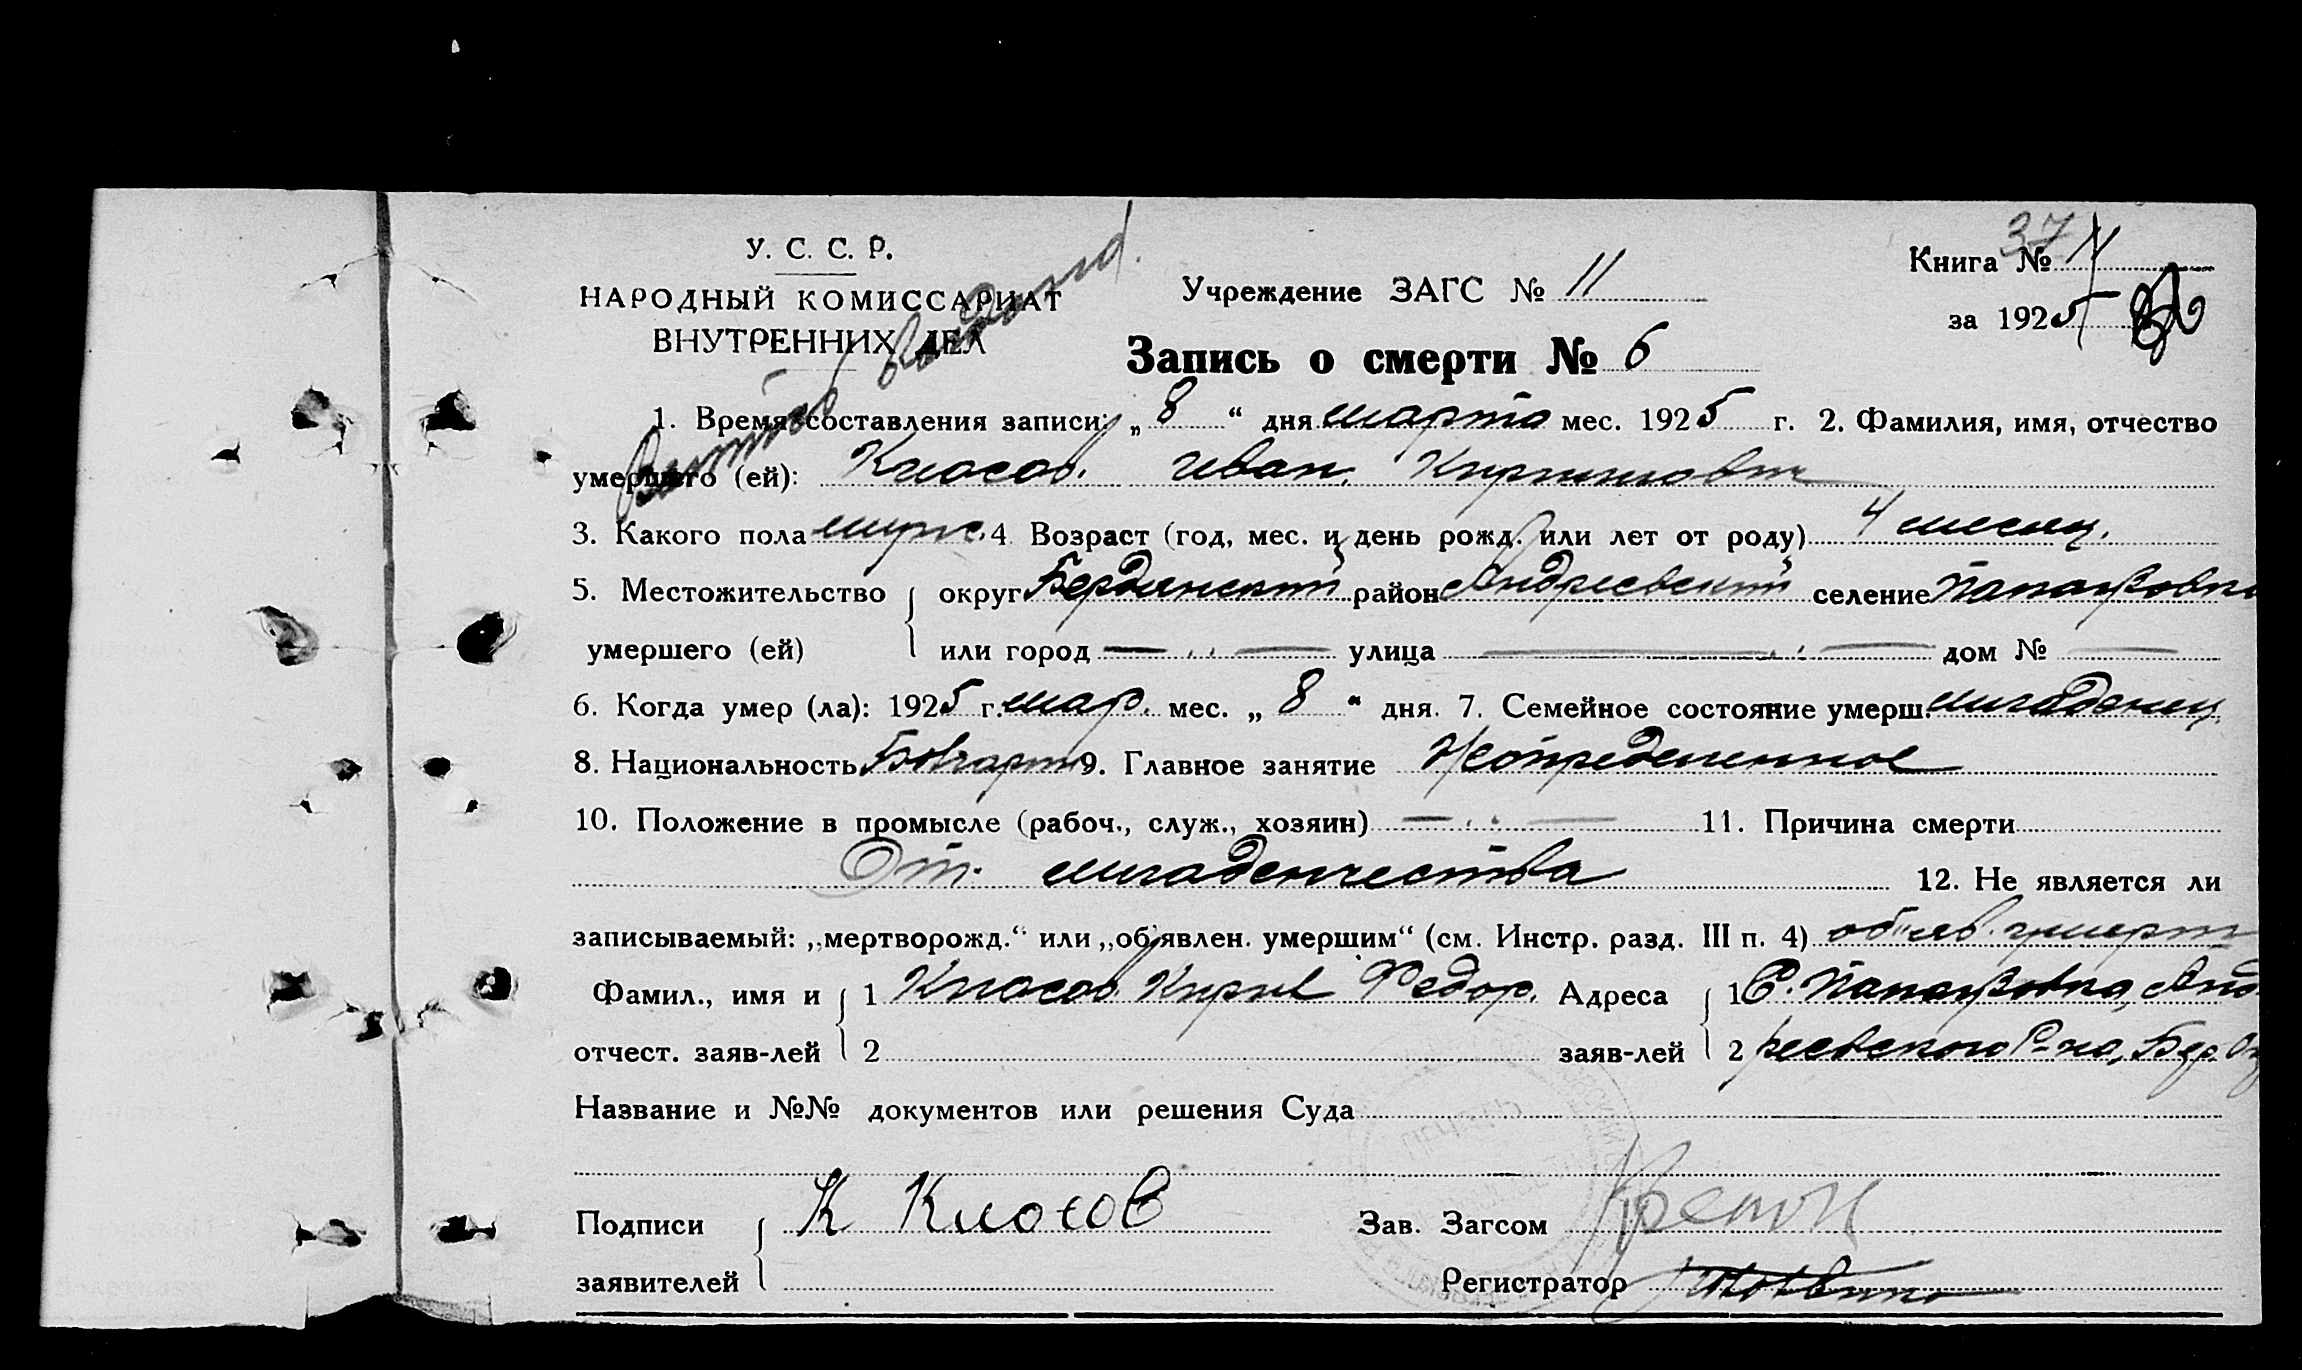 37
У. С. С. Р.
НАРОДНЫЙ КОМИССАРИАТ
ВНУТРЕННИХ ДЕЛ
Учреждение ЗАГС № 11
Книга №
за 1925
Запись о смерти № 6
1. Время составления записи: „ 8 “ дня марта мес. 1925 г. 2. Фамилия, имя, отчество
умершего (ей): Класов. Иван. Кириллович
3. Какого пола муж. 4 Возраст (год, мес. и день рожд. или лет от роду) 4 месяц.
5. Местожительство округ Бердянский район Андреевский селение
умершего (ей) или город — улица — дом № —
6. Когда умер (ла): 1925 г. мар. мес. „ 8 “ дня. 7. Семейное состояние умерш. младенец
8. Национальность Болгарин 9. Главное занятие Неопределенное
10. Положение в промысле (рабоч., служ., хозяин) — 11. Причина смерти
От. младенчества 12. Не является ли
записываемый: „мертворожд.“ или „об'явлен. умершим“ (см. Инстр. разд. III п. 4) об'яв. умерш
Фамил., имя и 1 Класов Кирил Федор. Адреса 1 С. Анд
отчест. заяв-лей 2 заяв-лей 2 реевского Р-на, Бер. Ок
Название и №№ документов или решения Суда
Подписи К Класов Зав. Загсом
заявителей Регистратор